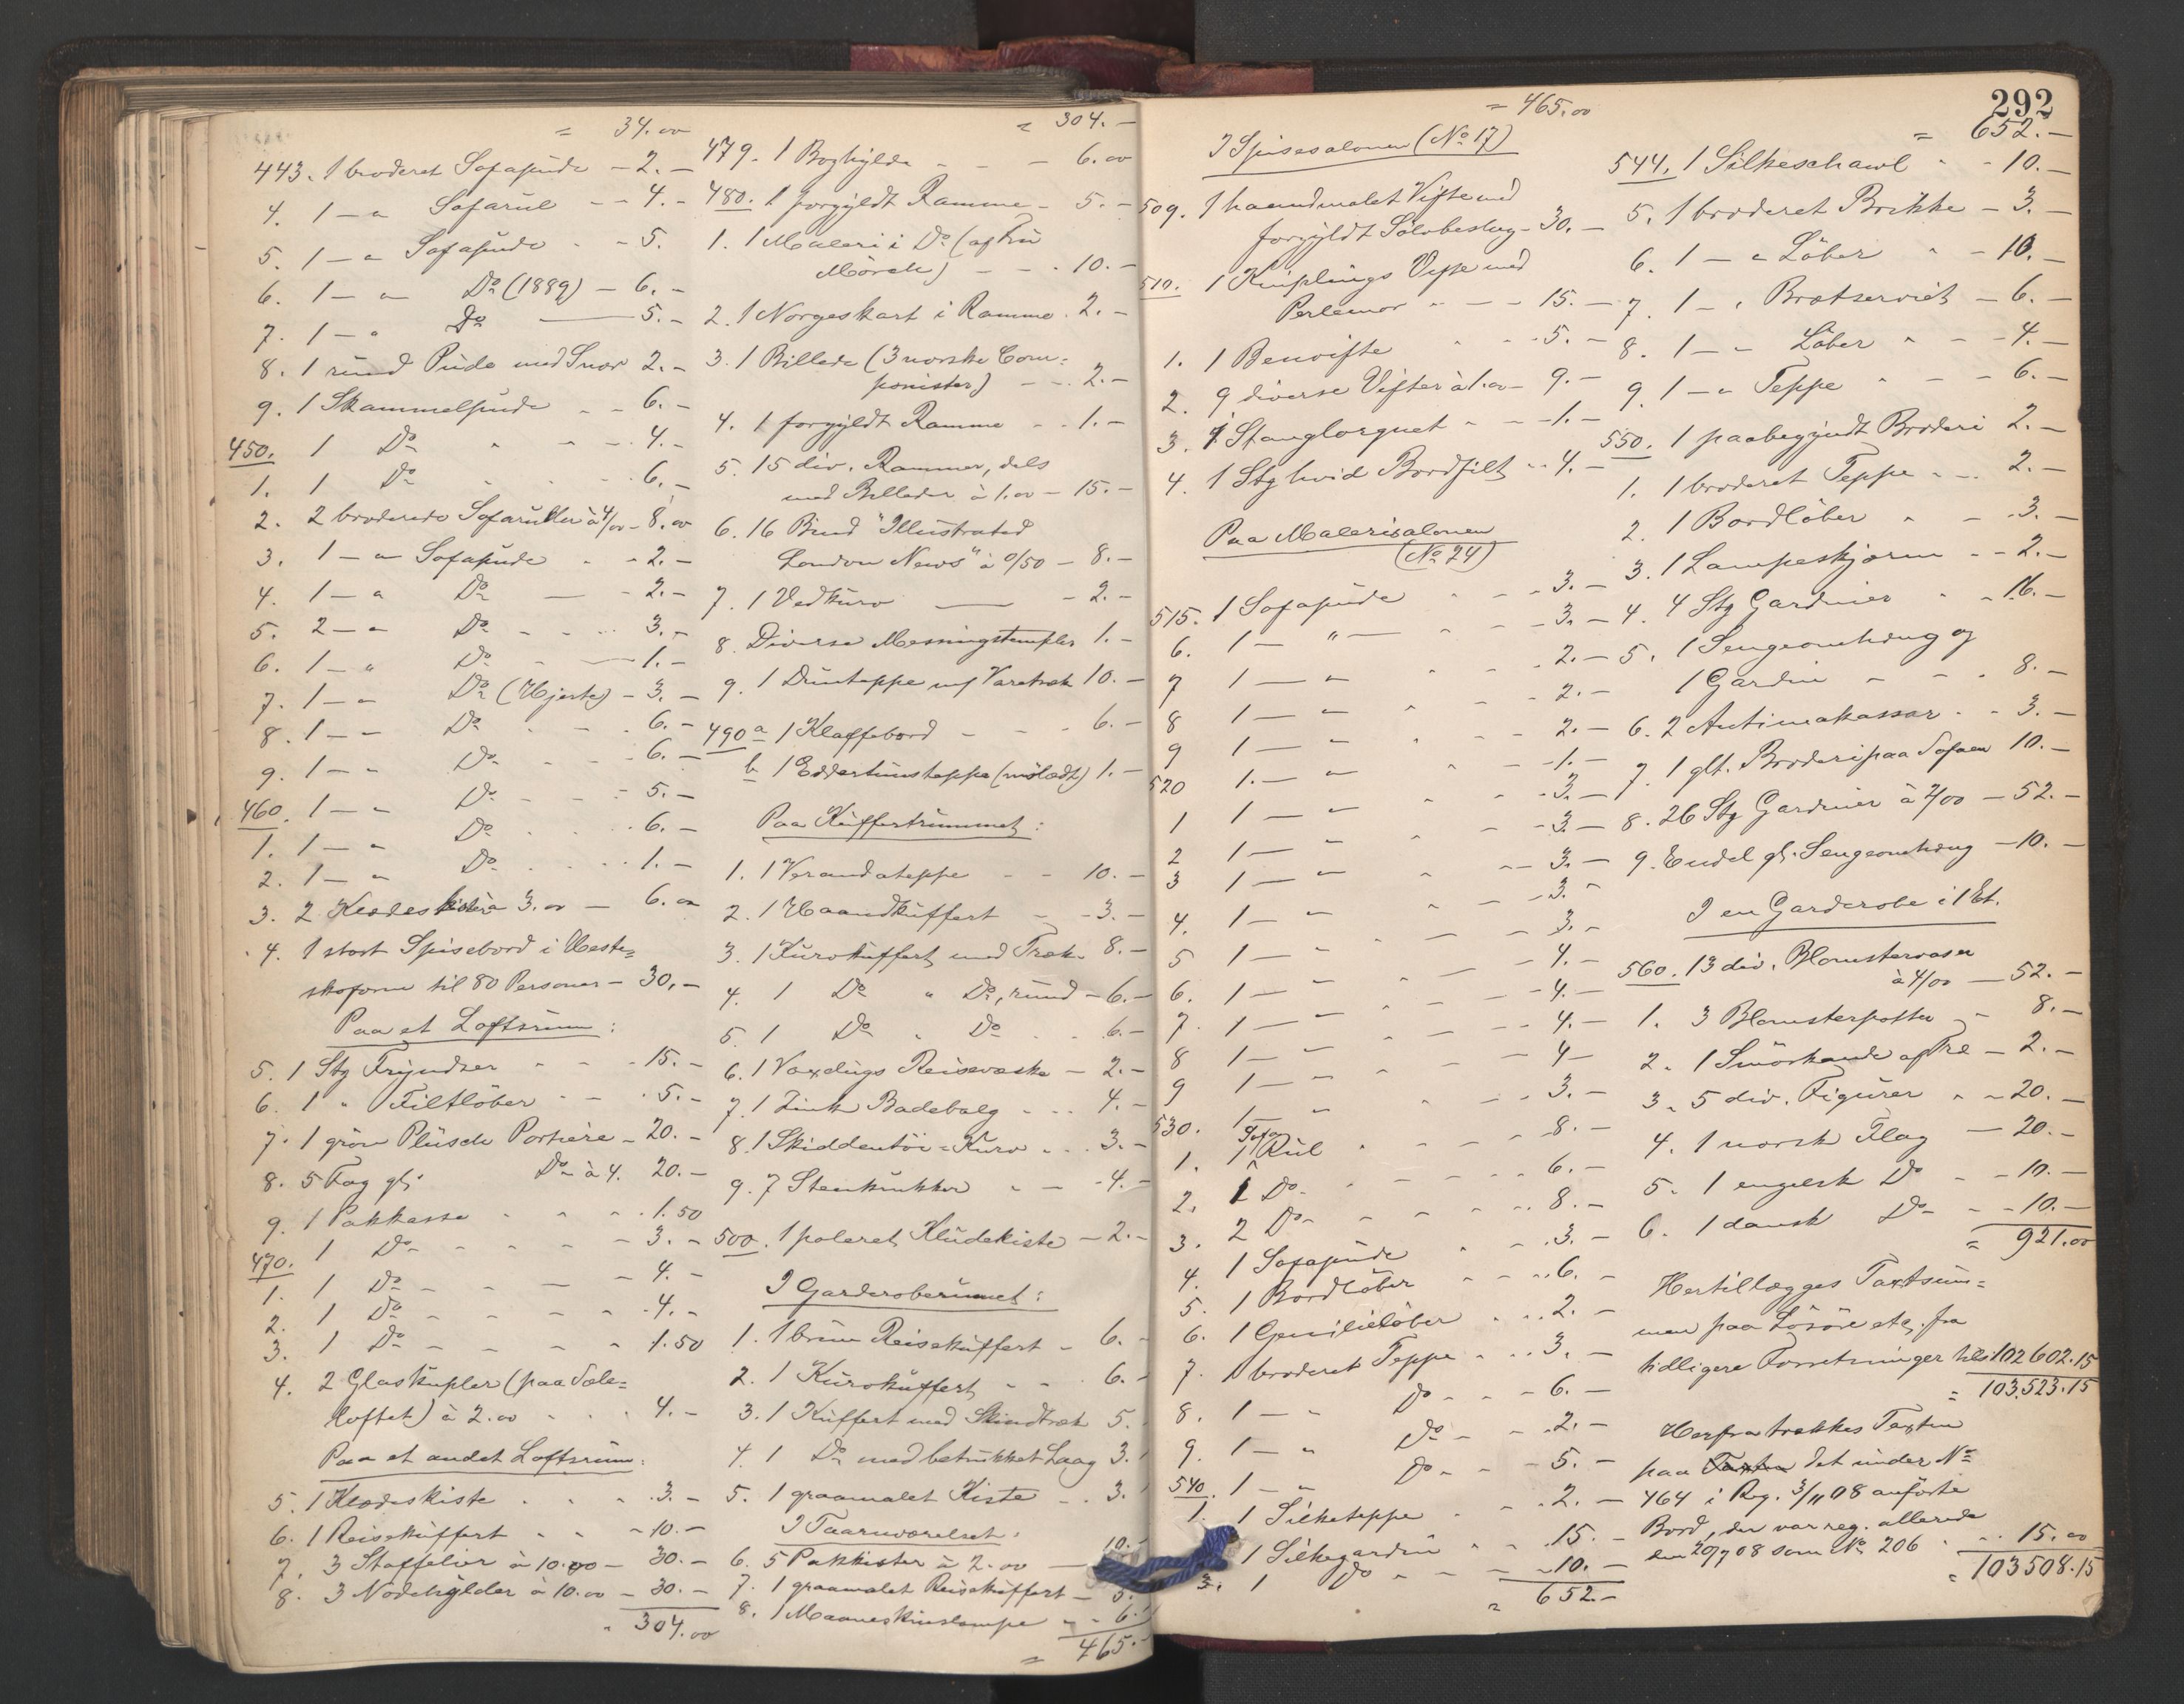 = 34.00
443. 1 broderet Sofapude - 2.-
4. 1 - " Sofarul - - 4.-
5. 1 - " Sofapude - - 5.
6. 1 - " Do (1889) - 6.-
7. 1 - " Do - 5.-
8. 1 rund Pude med Snor 2.-
9. 1 Skammelpude - - 6.-
450. 1 Do " - - 4.-
1. 1 Do - - - 6.-
2. 2 broderede Sofaruller à 4/00 - 8.00
3. 1 - " Sofapude - - 2.-
4. 1 - " Do - - 2.-
5. 2 - " Do - - - 3.-
6. 1 - " Do - - 1.-
7. 1 - " Do (Hjerte) - 3.-
8. 1 - " Do - - - 6.-
9. 1 - " Do - - - 6.-
460. 1 - " Do - - - 5.-
1. 1 - " Do - - - 6.-
2. 1 - " Do - - - 1.-
3. 2 Klædeskister à 3.00 - 6.00
4. 1 stort Spisebord i Heste=
skoform til 80 Personer - 30.-
Paa et Loftsrum:
5. 1 Stg Fryndser - - - 15.-
6. 1 " Filtlöber - - 5.-
7. 1 grön Plüsch Portière - 20.-
8. 5 Fag gl. Do à 4. 20.-
9. 1 Pakkasse - - - 1.50
470. 1 Do - - - - 3.-
1. 1 Do - - - - 4.-
2. 1 Do - - - - 4.-
3. 1 Do - - - - 1.50
4. 2 Glaskupler (paa Sale=
loftet) à 2.00 - - - 4.-
Paa et andet Loftsrum:
5. 1 Klædeskiste - - - 3.-
6. 1 Reisekuffert - - - 10.-
7. 3 Staffelier à 10.00 - 30.-
8. 3 Nodehylder à 10.00 - 30.-
" 304.00
= 304.-
479. 1 Boghylde - - - 6.00
480. 1 forgyldt Ramme - 5.-
1. 1 Maleri i Do (af Fru
Mörch) - - - 10.-
2. 1 Norgeskart i Ramme. 2.-
3. 1 Billede (3 norske Com=
ponister) - - - 2.-
4. 1 forgyldt Ramme - - 1.-
5. 15 div. Rammer, dels
med Billeder à 1.00 - 15.-
6. 16 Bind "Illustrated
London News" à 0/50 - 8.-
7. 1 Vedkurv - - 2.-
8. Diverse Messingstempler 1.-
9. 1 Dunteppe m/ Varetræk 10.-
490 a 1 Klaffebord - - - 6.-
b 1 Edderdunsteppe (mölædt) 1.-
Paa Kuffertrummet:
1. 1 Verandateppe - - 10.-
2. 1 Haandkuffert - - 3.-
3. 1 Kurvkuffert med Træk 8.-
4. 1 Do " Do, rund - 6.-
5. 1 Do " Do - - 6.-
6. 1 Voxdugs Reisevæske - 2.-
7. 1 Zink Badebalg - - - 4.-
8. 1 Skiddentöi=Kurv - - - 3.-
9. 7 Stenkrukker - - - 4.-
500. 1 poleret Kludekiste - 2.-
I Garderoberummet:
1. 1 brun Reisekuffert - 6.-
2. 1 Kurvkuffert - - - 6.-
3. 1 Kuffert med Skindtræk 5.
4. 1 Do med betrukket Laag 3.
5. 1 graamalet Kiste - - 3.
I Taarnværelset:
6. 5 Pakkister à 2.00 - 10.-
7. 1 graamalet Reisekuffert - 5.-
8. 1 Maaneskinslampe - - 6.-
= 465.-
292
= 465.00
I Spisesalonen (No 17)
509. 1 haandmalet Vifte med
forgyldt Sölvbeslag - 30.-
510. 1 Kniplings Vifte med
Perlemor - - - 15.-
1. 1 Benvifte - - 5.-
2. 9 diverse Vifter à 1.00 - 9.-
3. 1 Stanglorgnet - - - 1.-
4. 1 Stg hvid Bordfilt - - 4.-
Paa Malerisalonen
(No 24)
515. 1 Sofapude - - - 3.-
6. 1 - " - - - - 3.-
7 1 - " - - - 2.-
8 1 - " - - - 2.-
9 1 - " - - - 2.-
520 1. - " - - - 1.-
1 1 - " - - - 3.-
2 1 - " - - - 3.-
3 1 - " - - - 3.-
4. 1 - " - - - 3.-
5 1 - " - - - 3.-
6. 1 - " - - - 4.-
7. 1 - " - - - 4.-
8 1 - " - - - 4.-
9 1 - " - - - 4-
530. 1 - " - - - 3.-
1. 1 Sofa Rul - - - 8.-
2. 1 Do - - - - 6.-
3. 2 Do - - - - 8.-
4. 1 Sofapude - - - 3.-
5. 1 Bordlöber - - - 6.-
6. 1 Gemilielöber - - - 2.-
7. 1 broderet Teppe - - - 3.-
8. 1 - " Do - - - 6.-
9. 1 - " Do - - - 2.-
540. 1 - " Do - - - 5.-
1. 1 Silketeppe - - - 2.-
1 Silkegardin - - - 15.-
3. 1 Do - - - 10.-
= 652.-
= 652.-
544. 1 Silkeschawl - - 10.-
5. 1 broderet Brikke - 3.-
6. 1 - " Löber - - 10.-
7. 1 - " Brætserviet - 6.-
8. 1 - " Löber - - - 4.-
9. 1 - " Teppe - - - 6.-
550. 1 paabegyndt Broderi 2.-
1. 1 broderet Teppe - - - 2.-
2. 1 Bordlöber - - - 3.-
3. 1 Lampeskjærm - - 2.-
4. 4 Stg Gardiner - - 16.-
5. 1 Sengeomhæng og
1 Gardin - - - 8.-
6. 2 Antimakassar - - 3.-
7. 1 glt. Broderi paa Sofaen 10.-
8. 26 Stg Gardiner à 2/00 - 52.-
9. Endel gl. Sengeomhæng - 10.-
I en Garderobe i 1 Et.
560. 13 div. Blomstervaser
à 4/00 - 52.-
1. 3 Blomsterpotter - - 8.-
2. 1 Smörkande af Træ - 2.-
3. 5 div. Figurer - - 20.-
4. 1 norsk Flag - 20.-
5. 1 engelsk Do - - 10.-
6. 1 dansk Do - - 10.-
= 921.00
Hertillægges Taxtsum=
men paa Lösöre etc. fra
tidligere Forretninger tils. 102602.15
= 103,523.15
Herfra trækkes Taxten
paa Taxten det under No
464 i Reg. 3/11 08 anförte
Bord, der var reg. allerede
den 20/7 08 som No 206 - - 15.00
= 103508.15